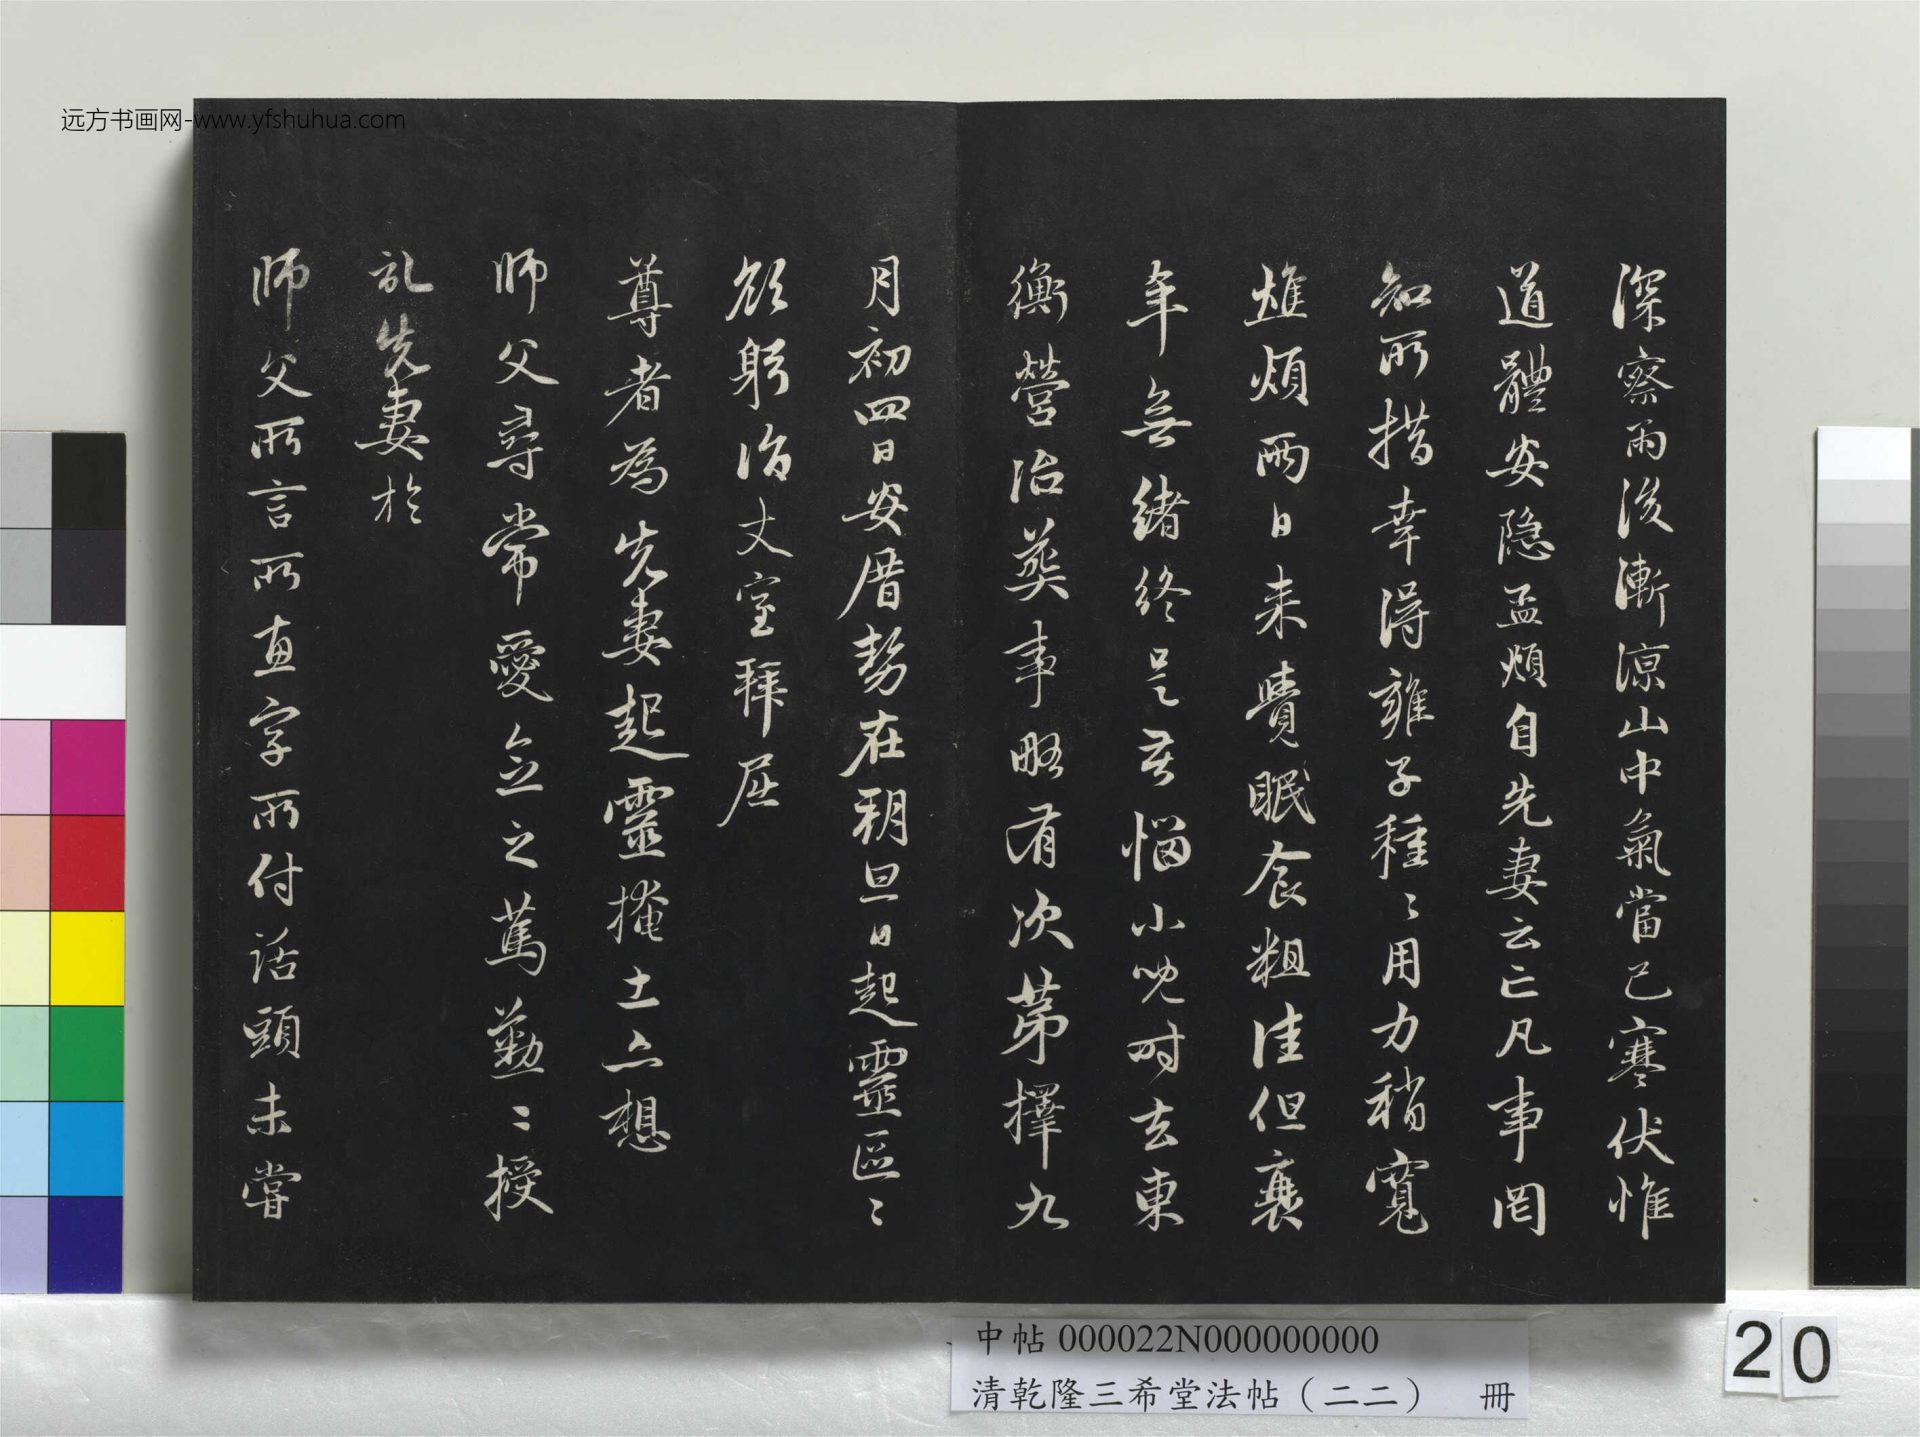 远方书画网-www.yfshuhua.com
深察雨後漸涼山中氣當已寒伏惟
道體安隐孟頫自先妻云亡凡事罔
知所措幸得雍子種〻用力稍寬
焦煩兩日来覺眠食粗佳但衰
年無緒終是苦惱小兒時去東
衡營治葬事略有次第擇九
月初四日安厝勢在朔旦日起靈區〻
欲躬詣丈室拜屈
尊者為先妻起靈掩土亦想
師父尋常愛念之篤勤〻授
記先妻於
師父所言所惠字所付話頭未嘗
中帖 000022N000000000
清乾隆三希堂法帖（二二） 冊
20